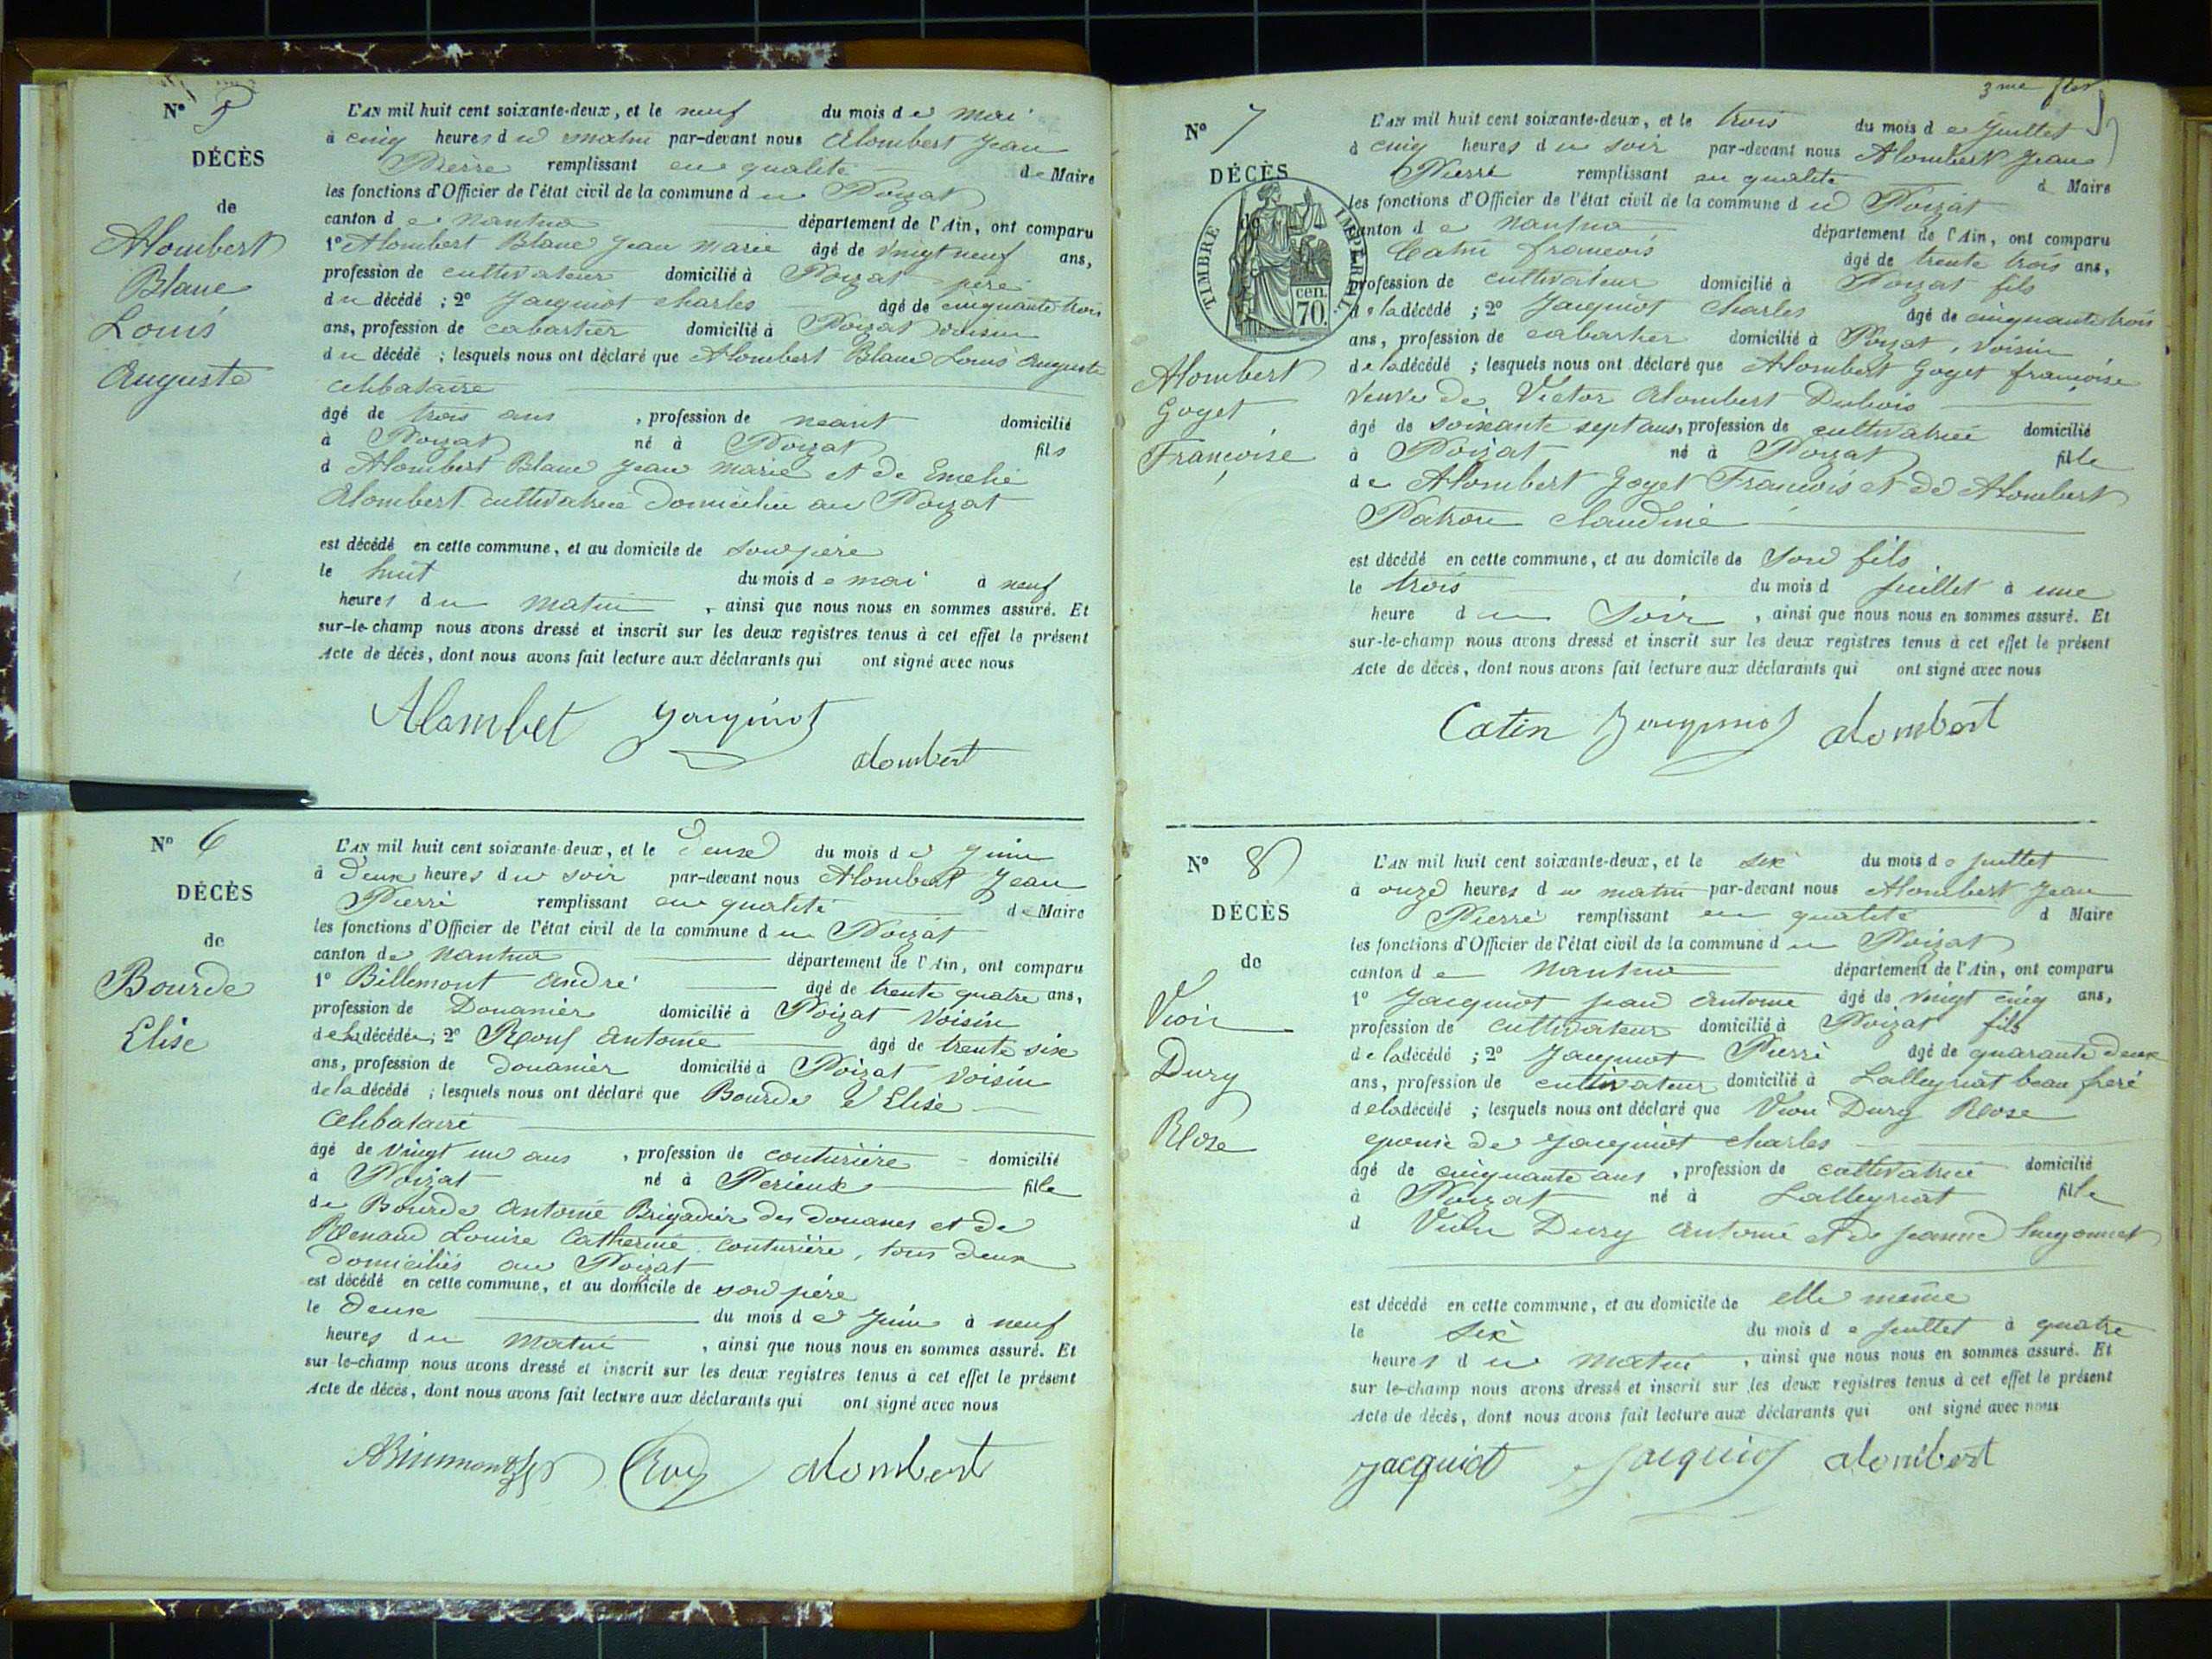 N° 5
DÉCÈS
de
Alombert
Blanc
Louis
Auguste
L'AN mil huit cent soixante-deux, et le neuf du mois de mai
à cinq heures du matin par-devant nous Alombert Jean
Pierre remplissant en qualité de Maire
les fonctions d'Officier de l'état civil de la commune du Poizat
canton de Nantua département de l'Ain, ont comparu
1° Alombert Blanc Jean Marie âgé de vingt neuf ans,
profession de cultivateur domicilié à Poizat père
du décédé ; 2° Jacquiot Charles âgé de cinquante trois
ans, profession de cabartier domicilié à Poizat voisin
du décédé ; lesquels nous ont déclaré que Alombert Blanc Louis Auguste
célibataire
âgé de trois ans , profession de neant domicilié
à Poizat né à Poizat fils
d Alombert Blanc Jean Marie et de Emelie
Alombert cultivatrice domiciliée au Poizat
est décédé en cette commune, et au domicile de son père
le huit du mois de mai à neuf
heures du matin , ainsi que nous nous en sommes assuré. Et
sur-le-champ nous avons dressé et inscrit sur les deux registres tenus à cet effet le présent
Acte de décès, dont nous avons fait lecture aux déclarants qui ont signé avec nous
Alambet Jacquiot
alombert
N° 6
DÉCÈS
de
Bourde
Elise
L'AN mil huit cent soixante-deux, et le deux du mois de Juin
à deux heures du soir par-devant nous Alombert Jean
Pierre remplissant en qualité de Maire
les fonctions d'Officier de l'état civil de la commune du Poizat
canton de Nantua département de l'Ain, ont comparu
1° Billemont André âgé de trente quatre ans,
profession de Douanier domicilié à Poizat voisin
de la décédée ; 2° Antoine âgé de trente six
ans, profession de douanier domicilié à Poizat voisin
de la décédé ; lesquels nous ont déclaré que Bourde Elise
célibataire
âgé de vingt un ans , profession de couturière domicilié
à Poizat né à Perieux fille
de Bourde Antoine Brigadier des douanes et de
Renaud Louise Catherine couturière, tous deux
domiciliés au Poizat
est décédé en cette commune, et au domicile de son père
le deux du mois de Juin à neuf
heures du matin , ainsi que nous nous en sommes assuré. Et
sur-le-champ nous avons dressé et inscrit sur les deux registres tenus à cet effet le présent
Acte de décès, dont nous avons fait lecture aux déclarants qui ont signé avec nous
alombert
3me
N° 7
DÉCÈS
de
TIMBRE IMPÉRIAL
cen.
70.
Alombert
Goyet
Françoise
L'AN mil huit cent soixante-deux, et le trois du mois de Juillet
à cinq heures du soir par-devant nous Alombert Jean
Pierre remplissant en qualité d Maire
les fonctions d'Officier de l'état civil de la commune du Poizat
canton de Nantua département de l'Ain, ont comparu
Catin francois âgé de trente trois ans,
profession de cultivateur domicilié à Poizat fils
de la décédé ; 2° Jacquiot Charles âgé de cinquante trois
ans, profession de cabartier domicilié à Poizat, voisin
de la décédé ; lesquels nous ont déclaré que Alombert Goyet françoise
veuve de Victor Alombert Dubois
âgé de soixante sept ans, profession de cultivatrice domicilié
à Poizat né à Poizat fille
de Alombert Goyet François et de Alombert
Patron Claudine
est décédé en cette commune, et au domicile de son fils
le trois du mois d Juillet à une
heure du soir , ainsi que nous nous en sommes assuré. Et
sur-le-champ nous avons dressé et inscrit sur les deux registres tenus à cet effet le présent
Acte de décès, dont nous avons fait lecture aux déclarants qui ont signé avec nous
Catin Jacquiot alombert
N° 8
DÉCÈS
de
Vion
Dury
Rose
L'AN mil huit cent soixante-deux, et le six du mois de Juillet
à onze heures du matin par-devant nous Alombert Jean
Pierre remplissant en qualité d Maire
les fonctions d'Officier de l'état civil de la commune du Poizat
canton de Nantua département de l'Ain, ont comparu
1° Jacquiot Jean Antoine âgé de vingt cinq ans,
profession de cultivateur domicilié à Poizat fils
de la décédé ; 2° Jacquiot Pierre âgé de quarante deux
ans, profession de cultivateur domicilié à Lalleyriat beau frere
de la décédé ; lesquels nous ont déclaré que Vion Dury Rose
epouse de Jacquiot Charles
âgé de cinquante ans , profession de cultivatrice domicilié
à Poizat né à Lalleyriat fille
d Vion Dury Antoine et de Jeanne
est décédé en cette commune, et au domicile de elle même
le six du mois de Juillet à quatre
heures du matin , ainsi que nous nous en sommes assuré. Et
sur-le-champ nous avons dressé et inscrit sur les deux registres tenus à cet effet le présent
Acte de décès, dont nous avons fait lecture aux déclarants qui ont signé avec nous
Jacquiot Jacquiot alombert